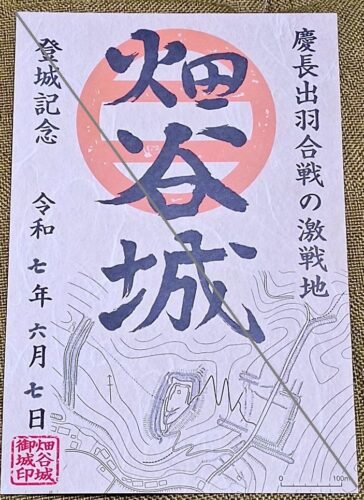 慶長出羽合戦の激戦地
畑谷城
登城記念 令和七年六月七日
畑谷城
御城印
0 100m